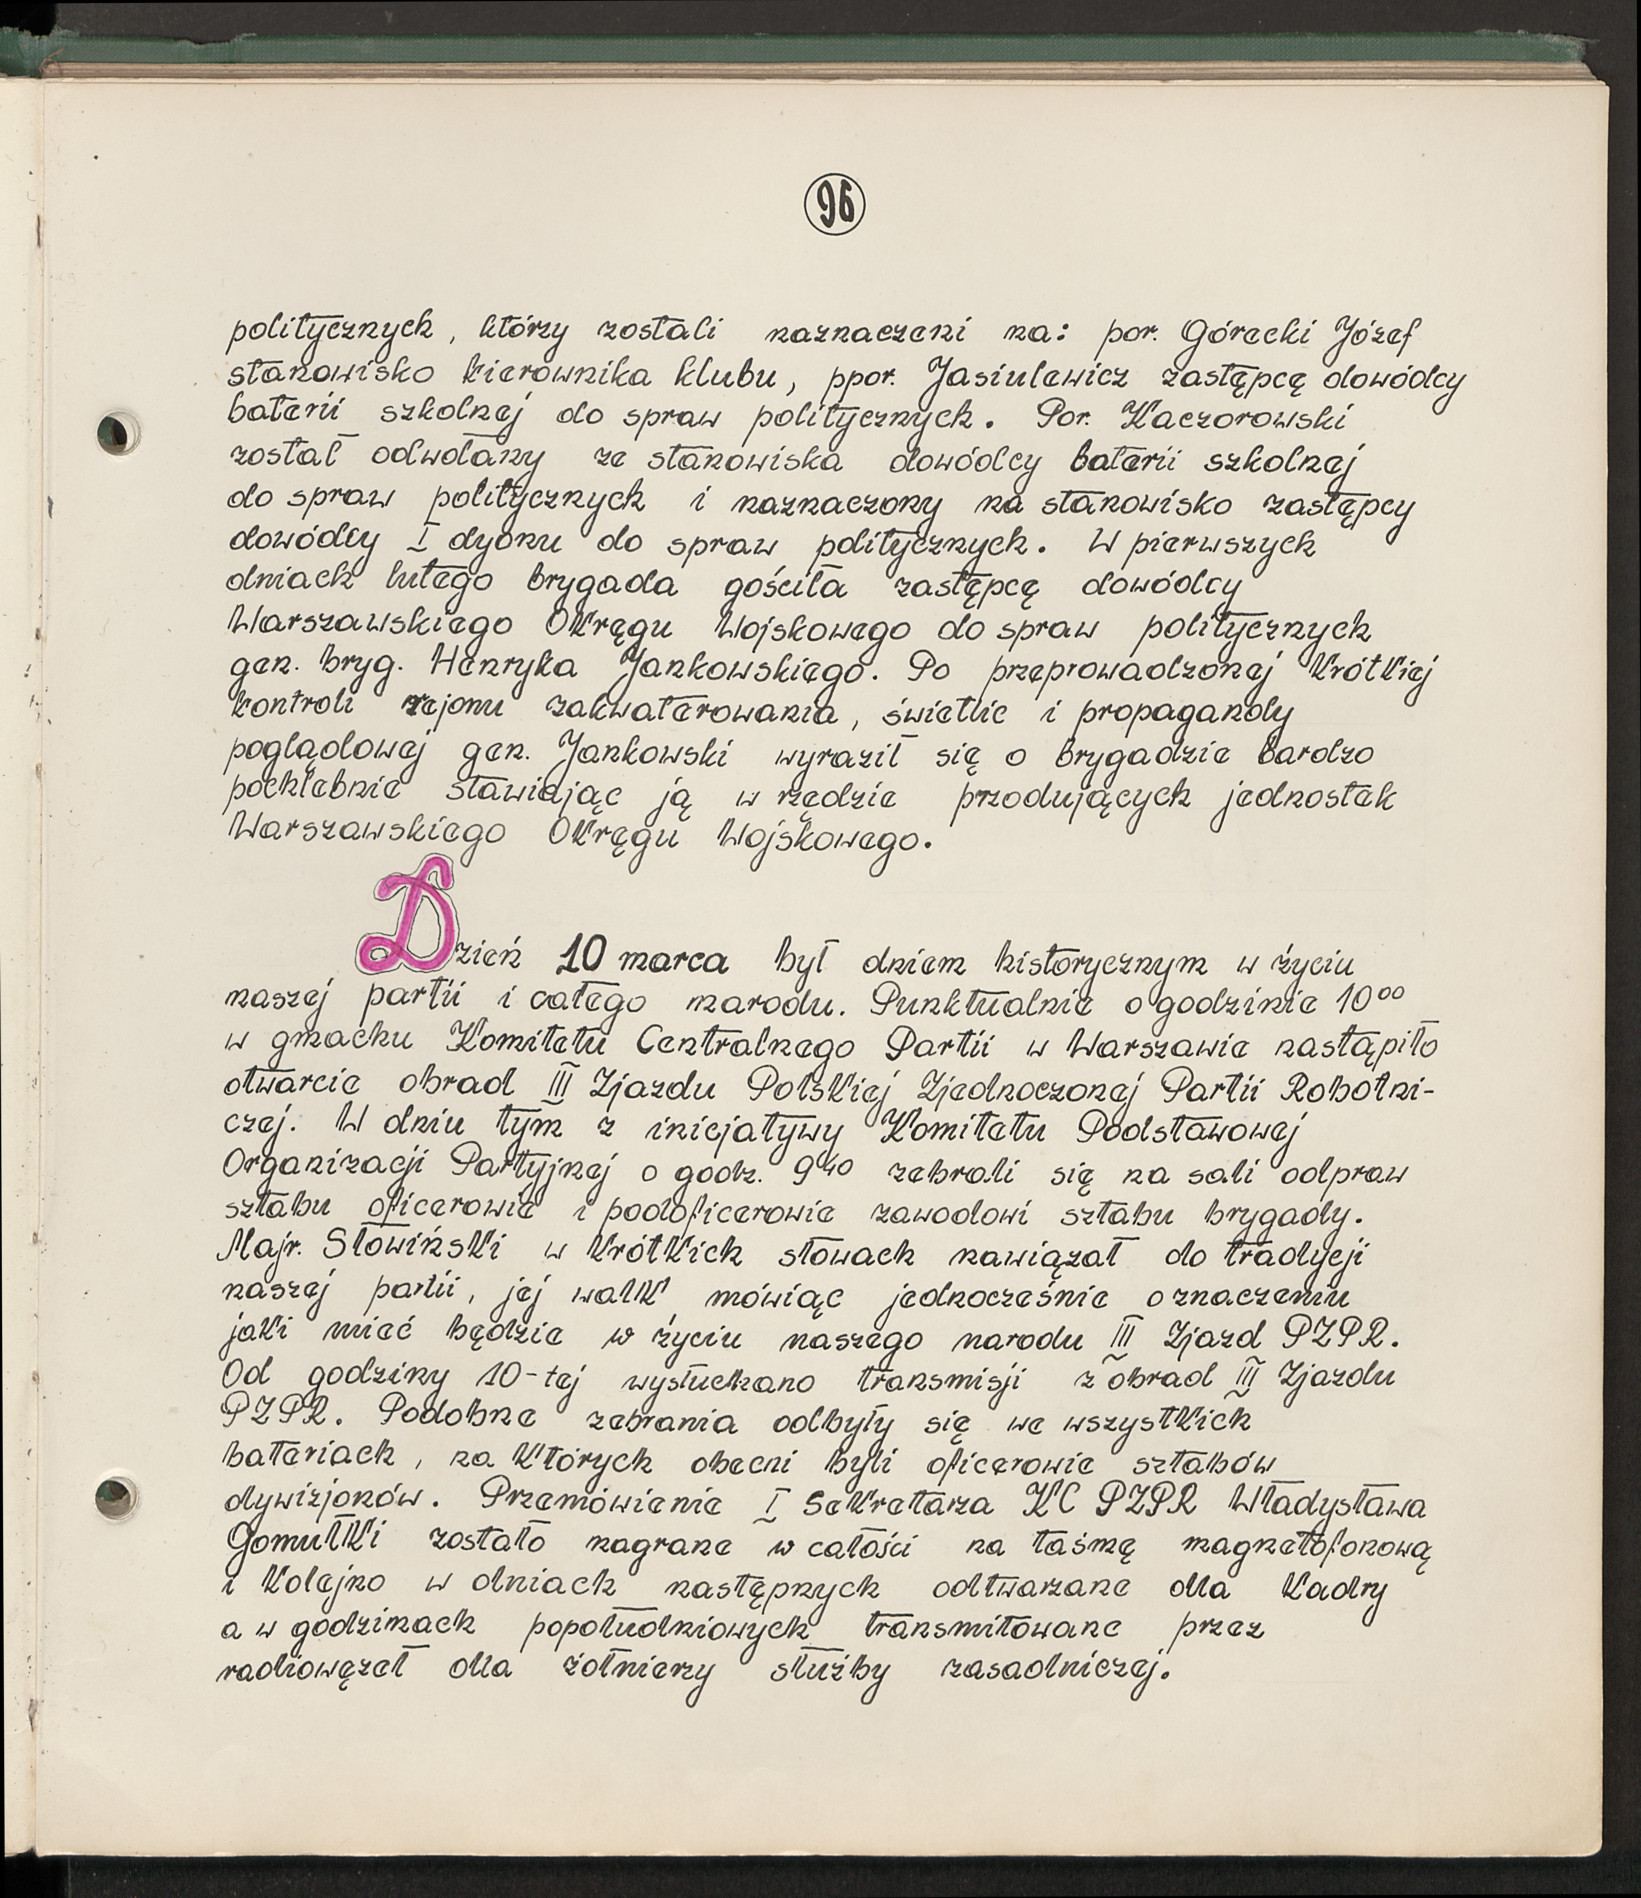 96
politycznych, którzy zostali naznaczeni na: por. Górecki Józef
stanowisko kierownika klubu, ppor. Jasiulewicz zastępcę dowódcy
baterii szkolnej do spraw politycznych. Por. Kaczorowski
został odwołany ze stanowiska dowódcy baterii szkolnej
do spraw politycznych i naznaczony na stanowisko zastępcy
dowódcy I dyonu do spraw politycznych. W pierwszych
dniach lutego brygada gościła zastępcę dowódcy
Warszawskiego Okręgu Wojskowego do spraw politycznych
gen. bryg. Henryka Jankowskiego. Po przeprowadzonej krótkiej
kontroli rejonu zakwaterowania, świetlic i propagandy
poglądowej gen. Jankowski wyraził się o brygadzie bardzo
pochlebnie stawiając ją w rzędzie przodujących jednostek
Warszawskiego Okręgu Wojskowego.
Dzień 10 marca był dniem historycznym w życiu
naszej partii i całego narodu. Punktualnie o godzinie 10⁰⁰
w gmachu Komitetu Centralnego Partii w Warszawie nastąpiło
otwarcie obrad III Zjazdu Polskiej Zjednoczonej Partii Robotni-
czej. W dniu tym z inicjatywy Komitetu Podstawowej
Organizacji Partyjnej o godz. 9⁴⁰ zebrali się na sali odpraw
sztabu oficerowie i podoficerowie zawodowi sztabu brygady.
Majr. Słowiński w krótkich słowach nawiązał do tradycji
naszej partii, jej walk mówiąc jednocześnie o znaczeniu
jaki mieć będzie w życiu naszego narodu III Zjazd PZPR.
Od godziny 10-tej wysłuchano transmisji z obrad III Zjazdu
PZPR. Podobne zebrania odbyły się we wszystkich
bateriach, na których obecni byli oficerowie sztabów
dywizjonów. Przemówienie I Sekretarza KC PZPR Władysława
Gomułki zostało nagrane w całości na taśmę magnetofonową
i kolejno w dniach następnych odtwarzane dla kadry
a w godzinach popołudniowych transmitowane przez
radiowęzeł dla żołnierzy służby zasadniczej.